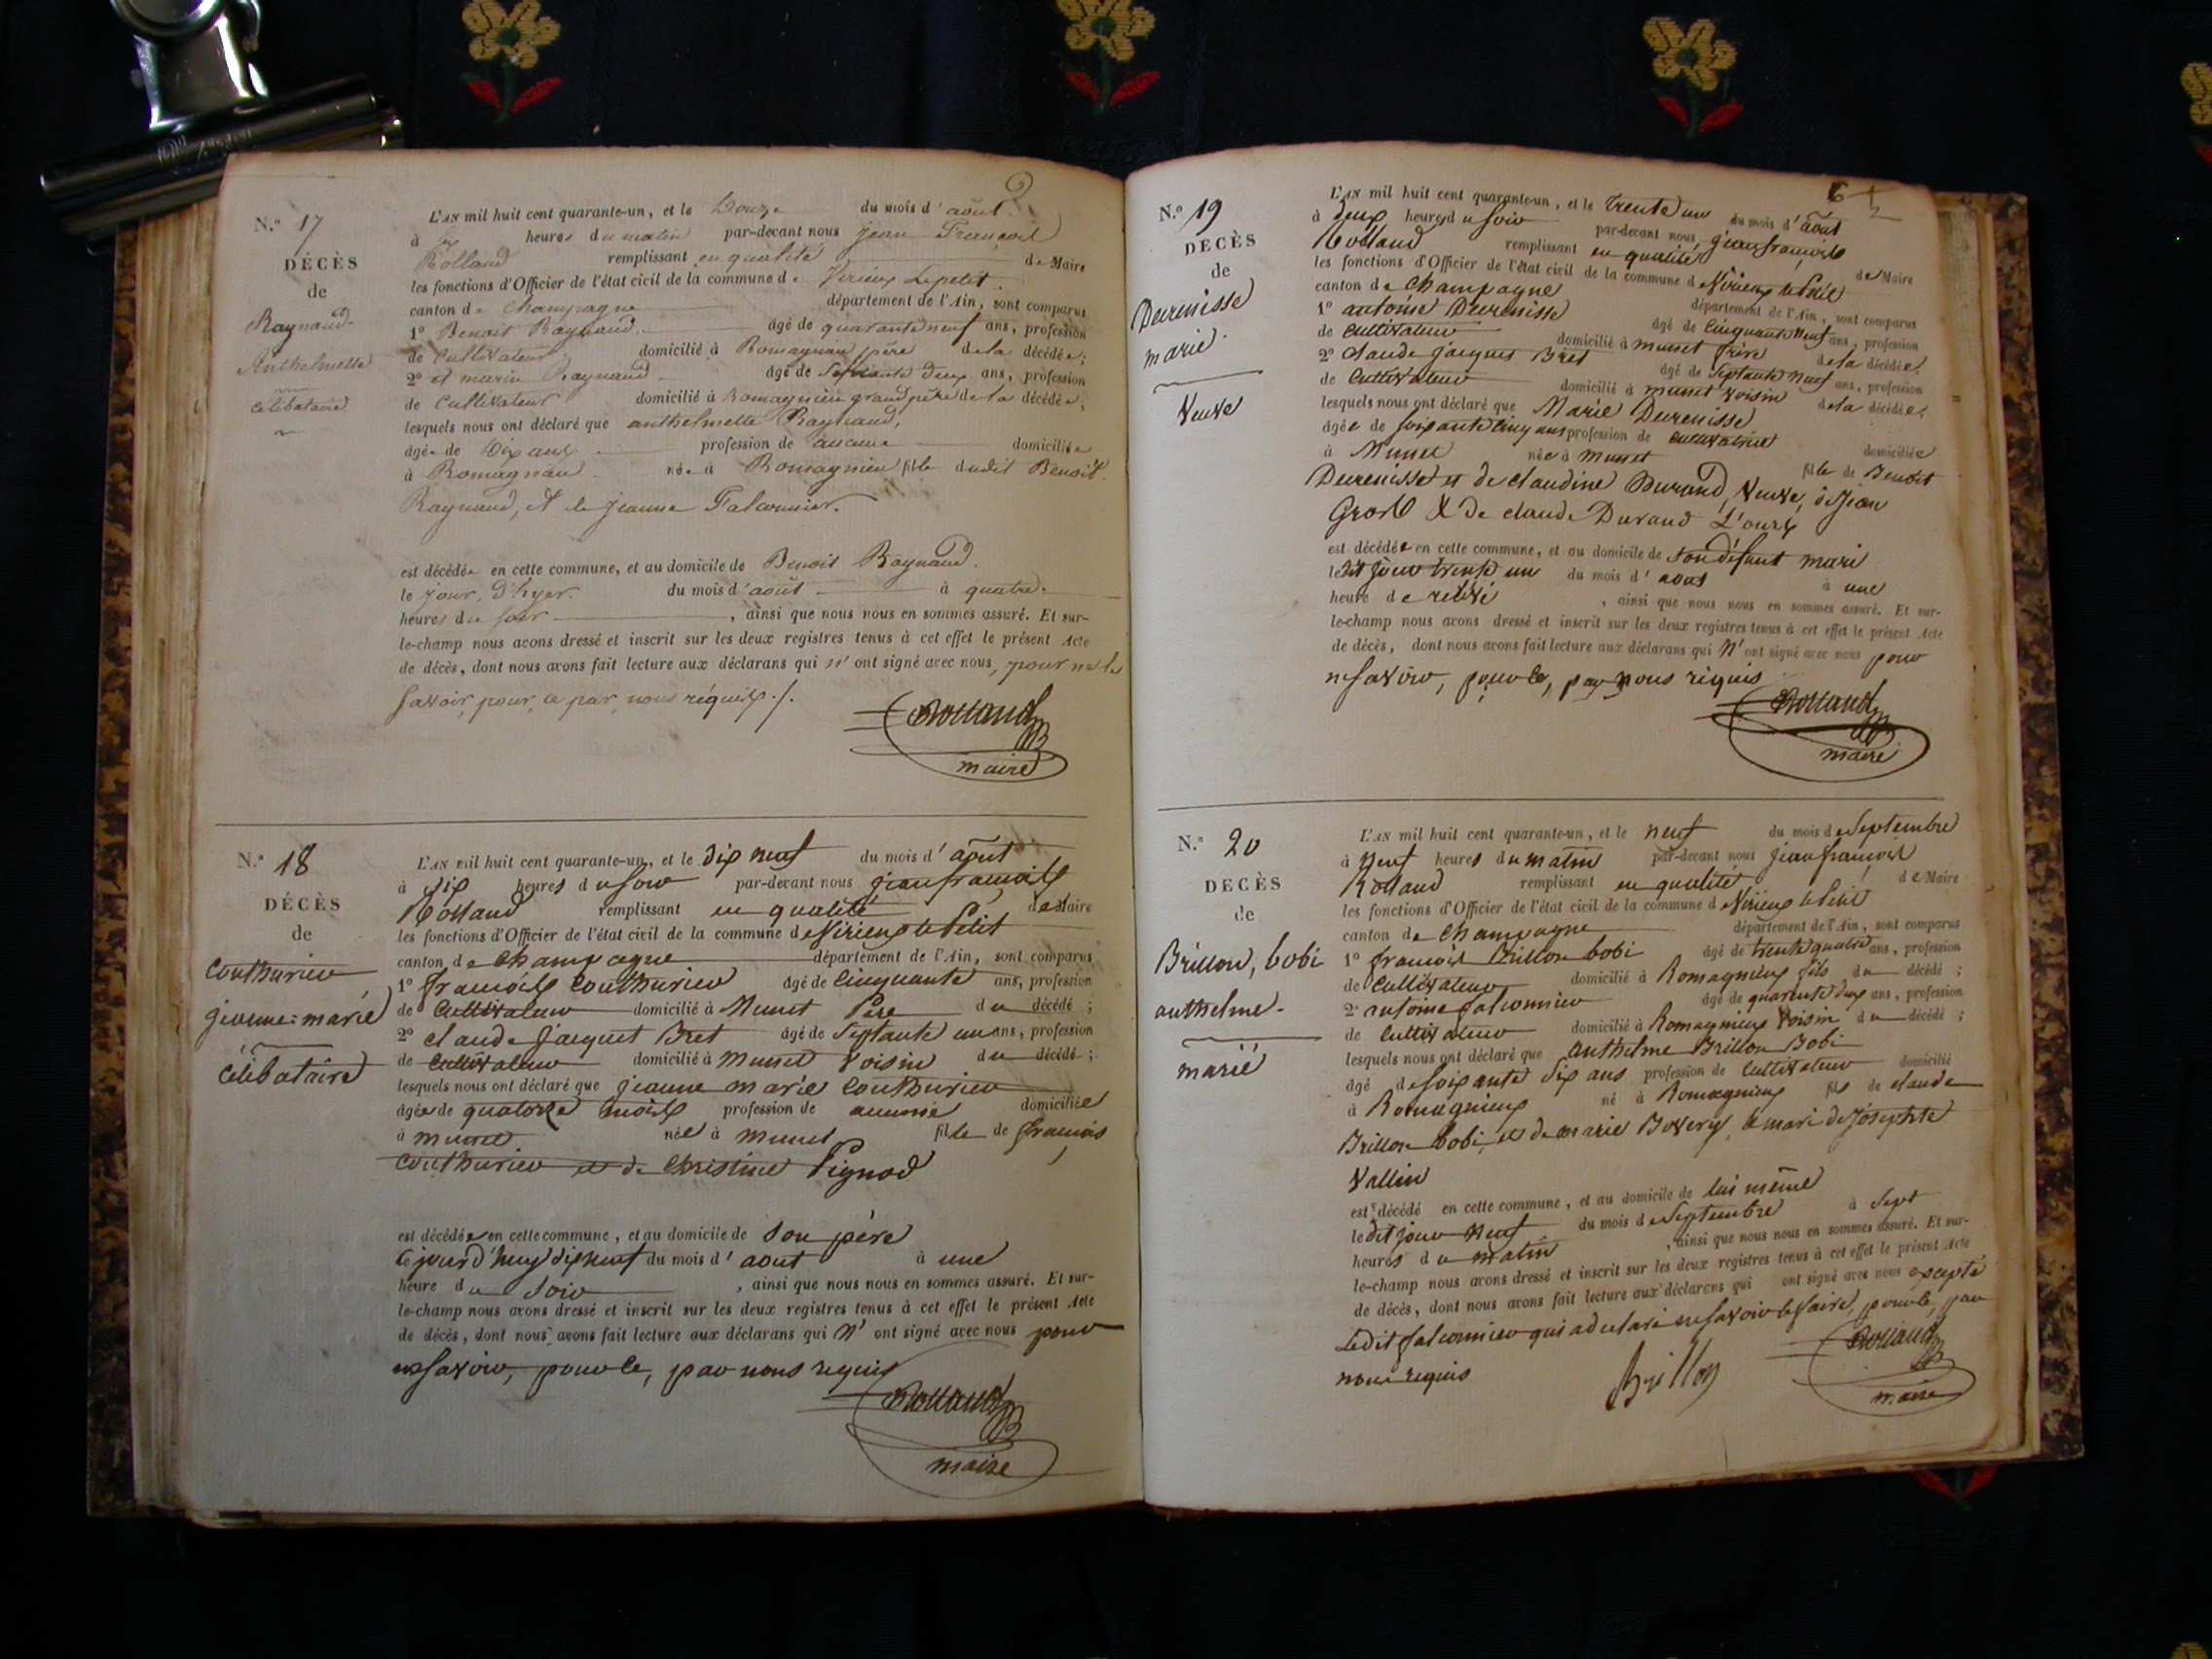 N.º 17
DÉCÈS
de
Raynaud
Anthelmette
célibataire
L'AN mil huit cent quarante-un, et le Douze du mois d'août
à heures du matin par-devant nous jean François
Rolland remplissant en qualité de Maire
les fonctions d'Officier de l'état civil de la commune de Virieux Lepetit
canton de Champagne département de l'Ain, sont comparus
1º Benoit Raynaud âgé de quarante neuf ans, profession
de Cultivateur domicilié à Romagnieu père de la décédée;
2º et marin Raynaud âgé de Septante deux ans, profession
de Cultivateur domicilié à Romagnieu grand père de la décédée;
lesquels nous ont déclaré que anthelmette Raynaud,
âgée de Dix ans profession de aucune domiciliée
à Romagnieu née à Romagnieu fille dudit Benoit
Raynaud, et de jeanne Falconnier.
est décédée en cette commune, et au domicile de Benoit Raynaud.
le jour d'hyer du mois d'août à quatre
heures du soir, ainsi que nous nous en sommes assuré. Et sur-
le-champ nous avons dressé et inscrit sur les deux registres tenus à cet effet le présent Acte
de décès, dont nous avons fait lecture aux déclarans qui n'ont signé avec nous, pour ne le
savoir, pour ce par nous réquis./.
Rolland
maire
N.º 18
DÉCÈS
de
Couthurieu
jeanne=marie
célibataire
L'AN mil huit cent quarante-un, et le dix neuf du mois d'août
à six heures du soir par-devant nous jean françois
Rolland remplissant en qualité de Maire
les fonctions d'Officier de l'état civil de la commune de Virieux le Petit
canton de Champagne département de l'Ain, sont comparus
1º françois Couthurieu âgé de Cinquante ans, profession
de Cultivateur domicilié à Munet Père du décédé;
2º claude jacques Bret âgé de Septante un ans, profession
de Cultivateur domicilié à Munet voisin du décédé;
lesquels nous ont déclaré que jeanne marie Couthurieu
âgée de quatorze mois profession de aucune domiciliée
à munet née à munet fille de françois
Couthurieu et de Christine Pignod
est décédée en cette commune, et au domicile de Son père
Ce jourd'huy dix neuf du mois d'aout à une
heure du Soir, ainsi que nous nous en sommes assuré. Et sur-
le-champ nous avons dressé et inscrit sur les deux registres tenus à cet effet le présent Acte
de décès, dont nous avons fait lecture aux déclarans qui n'ont signé avec nous pour
ne Savoir, pour ce, par nous requis
Rolland
maire
6
N.º 19
DÉCÈS
de
Durenisse
marie.
Veuve
L'AN mil huit cent quarante-un, et le trente un du mois d'août
à deux heures du soir par-devant nous jean françois
Rolland remplissant en qualité de Maire
les fonctions d'Officier de l'état civil de la commune de Virieux le Petit
canton de Champagne département de l'Ain, sont comparus
1º antoine Durenisse âgé de Cinquante neuf ans, profession
de Cultivateur domicilié à munet frère de la décédée
2º claude jacques Bret âgé de Septante neuf ans, profession
de Cultivateur domicilié à munet voisin de la décédée;
lesquels nous ont déclaré que Marie Durenisse
âgée de soixante cinq ans profession de cultivatrice domiciliée
à Munet née à munet fille de Benoit
Durenisse et de claudine Durand, Veuve, de Jean
Gros & de claude Durand L'ours
est décédée en cette commune, et au domicile de son défunt mari
le dit jour trente un du mois d'aout à une
heure de relevé, ainsi que nous nous en sommes assuré. Et sur-
le-champ nous avons dressé et inscrit sur les deux registres tenus à cet effet le présent Acte
de décès, dont nous avons fait lecture aux déclarans qui n'ont signé avec nous pour
ne savoir, pour ce, par nous réquis
Rolland
maire
N.º 20
DÉCÈS
de
Brillon, bobi
anthelme.
marié
L'AN mil huit cent quarante-un, et le neuf du mois de Septembre
à Neuf heures du matin par-devant nous jean françois
Rolland remplissant en qualité de Maire
les fonctions d'Officier de l'état civil de la commune de Virieux le Petit
canton de Champagne département de l'Ain, sont comparus
1º françois Brillon bobi âgé de trente quatre ans, profession
de Cultivateur domicilié à Romagnieux fils du décédé;
2º antoine falconnier âgé de quarente deux ans, profession
de Cultivateur domicilié à Romagnieux Voisin du décédé;
lesquels nous ont déclaré que Anthelme Brillon Bobi
âgé de soixante dix ans profession de Cultivateur domicilié
à Romagnieux né à Romagnieux fils de claude
Brillon bobi, et de marie Bovery, le mari de Josephte
Vallin
est décédé en cette commune, et au domicile de lui même
le dit jour Neuf du mois de Septembre à Sept
heures du matin, ainsi que nous nous en sommes assuré. Et sur-
le-champ nous avons dressé et inscrit sur les deux registres tenus à cet effet le présent Acte
de décès, dont nous avons fait lecture aux déclarans qui ont signé avec nous excepté
Ledit falconnier qui a déclaré ne savoir le faire, pour ce, par
nous requis
Brillon
Rolland
maire